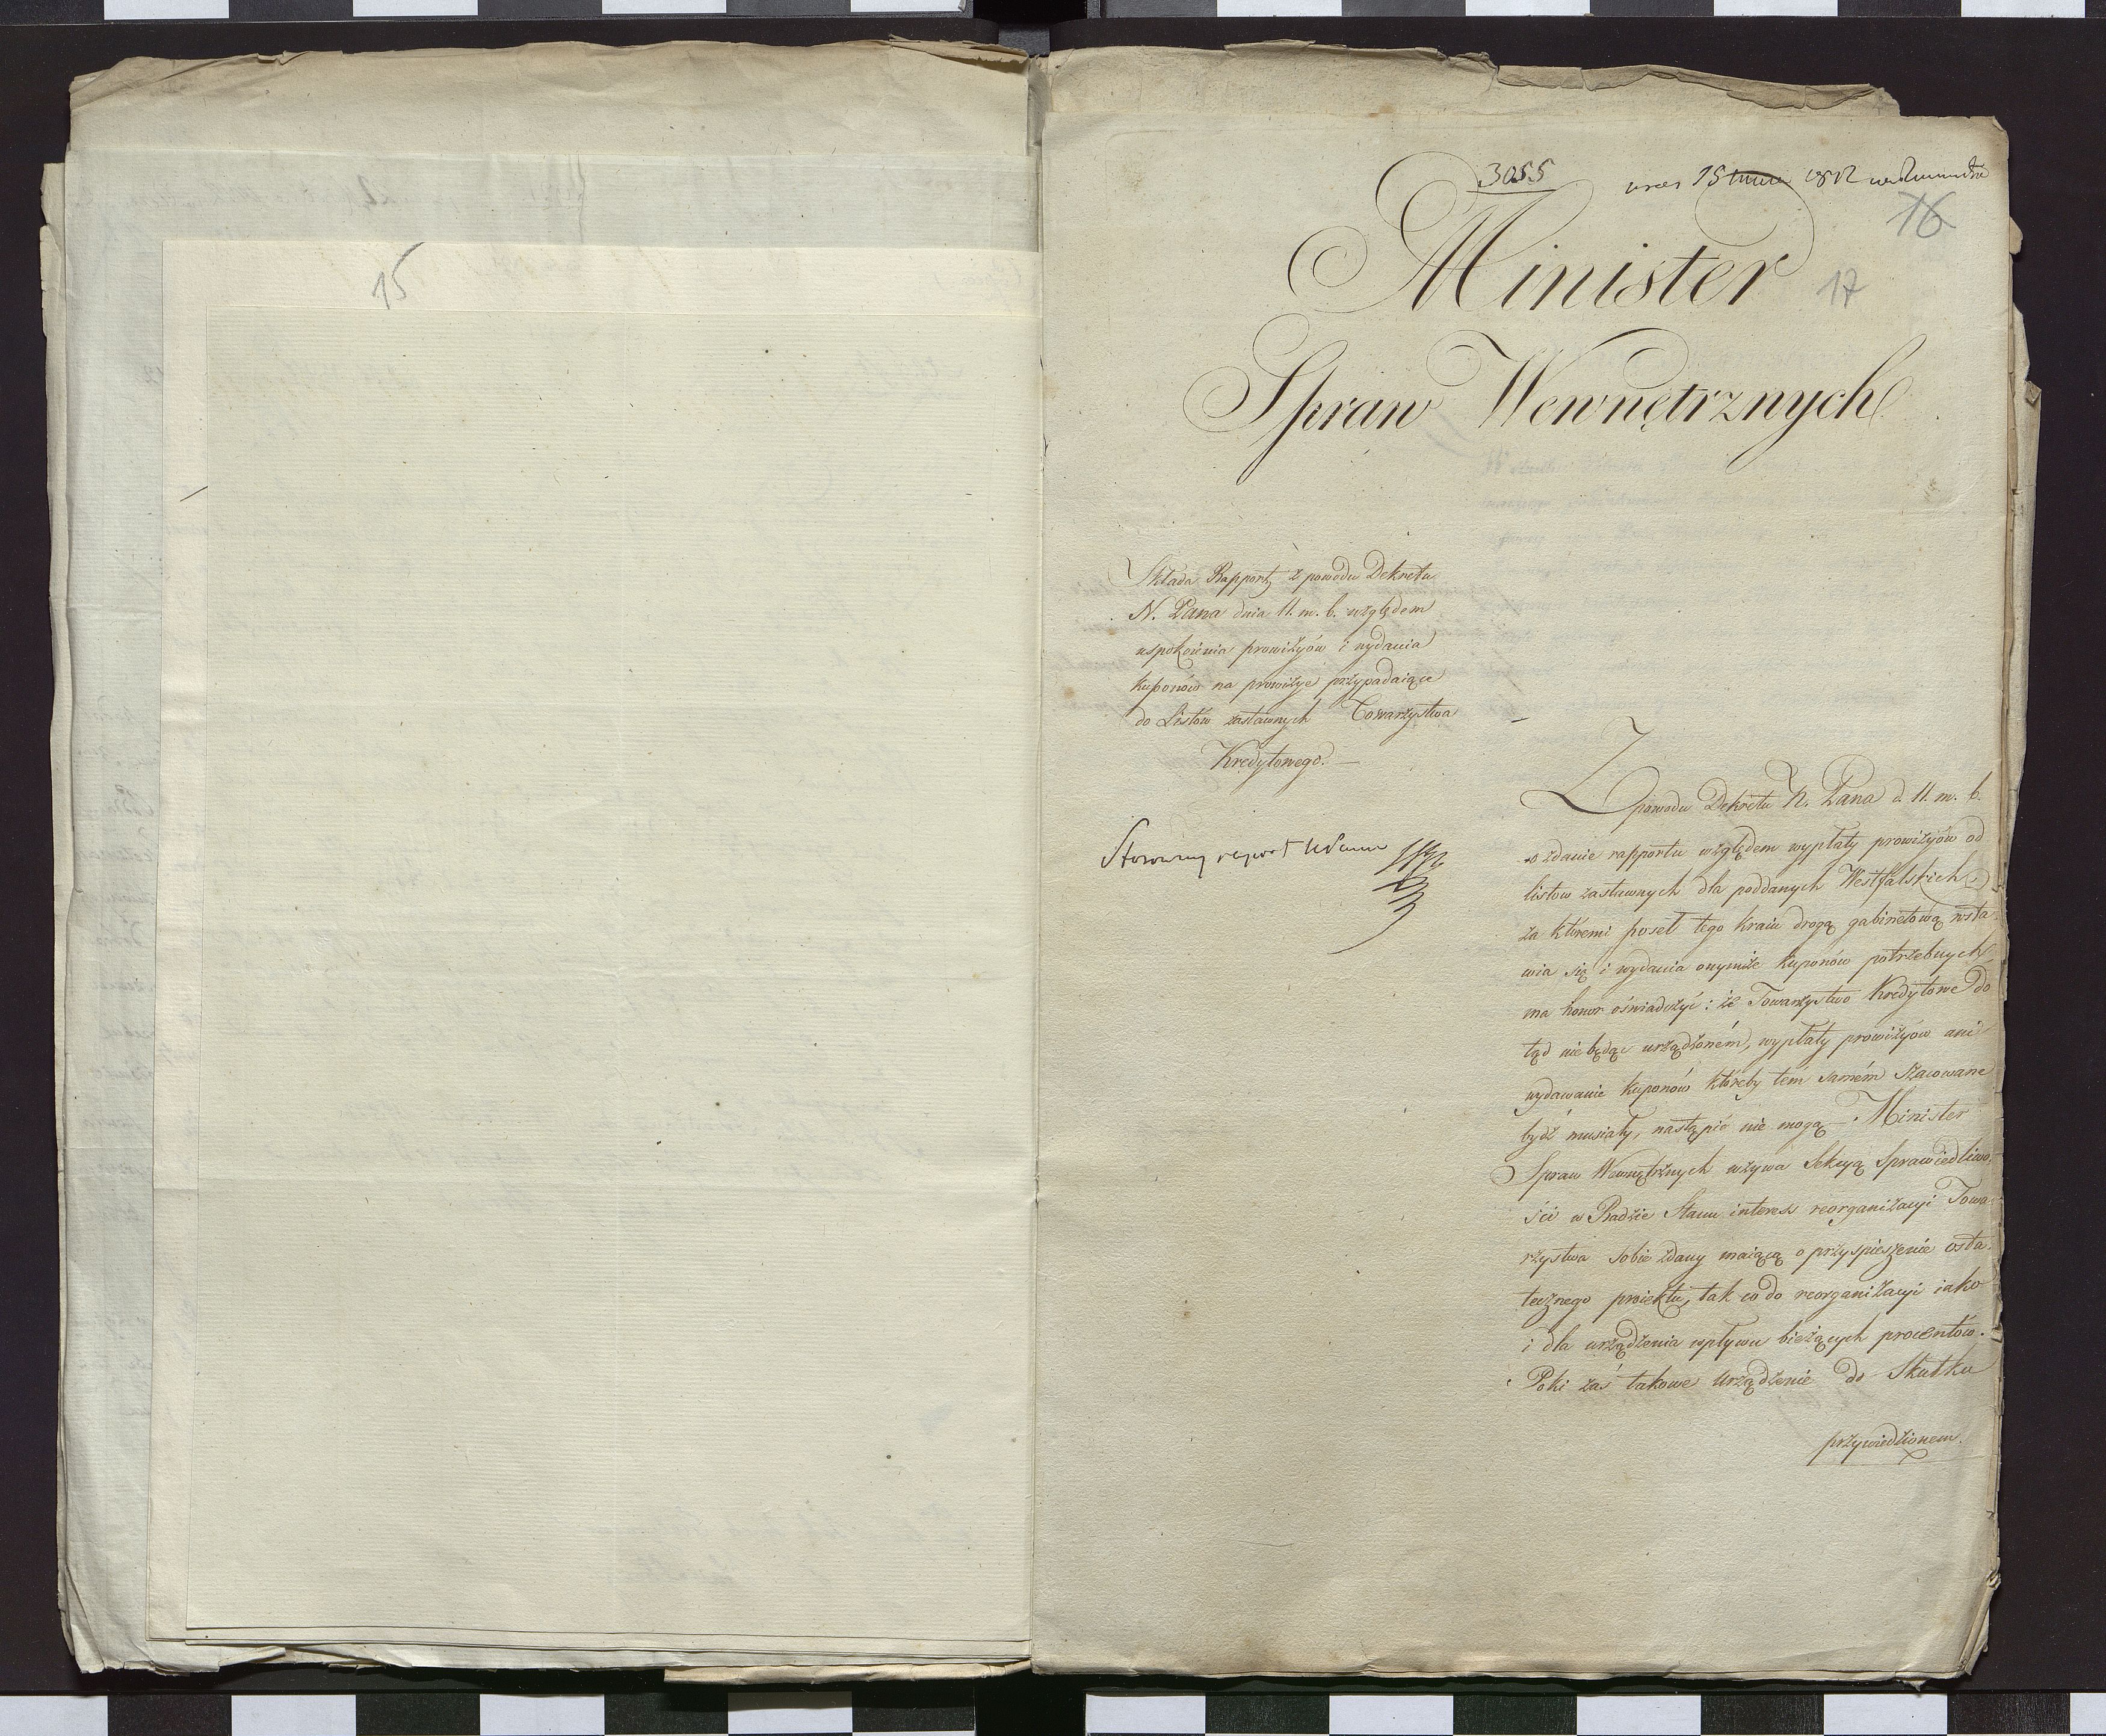 15
3055
15 1812
16
Minister
17
Spraw Wewnętrznych
Składa Rapport z powodu Dekretu
N. Pana dnia 11. m. b. względem
uspokoienia prowizyów i wydania
kuponów na prowizye przypadaiące
do Listów zastawnych Towarzystwa
Kredytowego. —
Stosowny raport
Z powodu Dekretu N. Pana d. 11. m. b.
o zdanie rapportu względem wypłaty prowizyów od
listow zastawnych dla poddanych Westfalskich
za któremi poseł tego kraiu drogą gabinetową wsta-
wia się i wydania onymże kuponów potrzebnych
ma honor oświadczyć: że Towarzystwo Kredytowe do
tąd nie będąc urządzoném, wypłaty prowizyów ani
wydawanie kuponów któreby tém samém szacowane
bydź musiały, nastąpić nie mogą —. Minister
Spraw Wewnętrznych wzywa Sekcyą Sprawiedliwo-
ści w Radzie Stanu interess reorganizacyi Towa-
rzystwa sobie zdany maiącą o przyspieszenie osta-
tecznego proiektu, tak co do reorganizacyi iako
i dla urządzenia wpływu bieżących procentów.
Poki zaś takowe urządzenie do Skutku
przywiedzionem